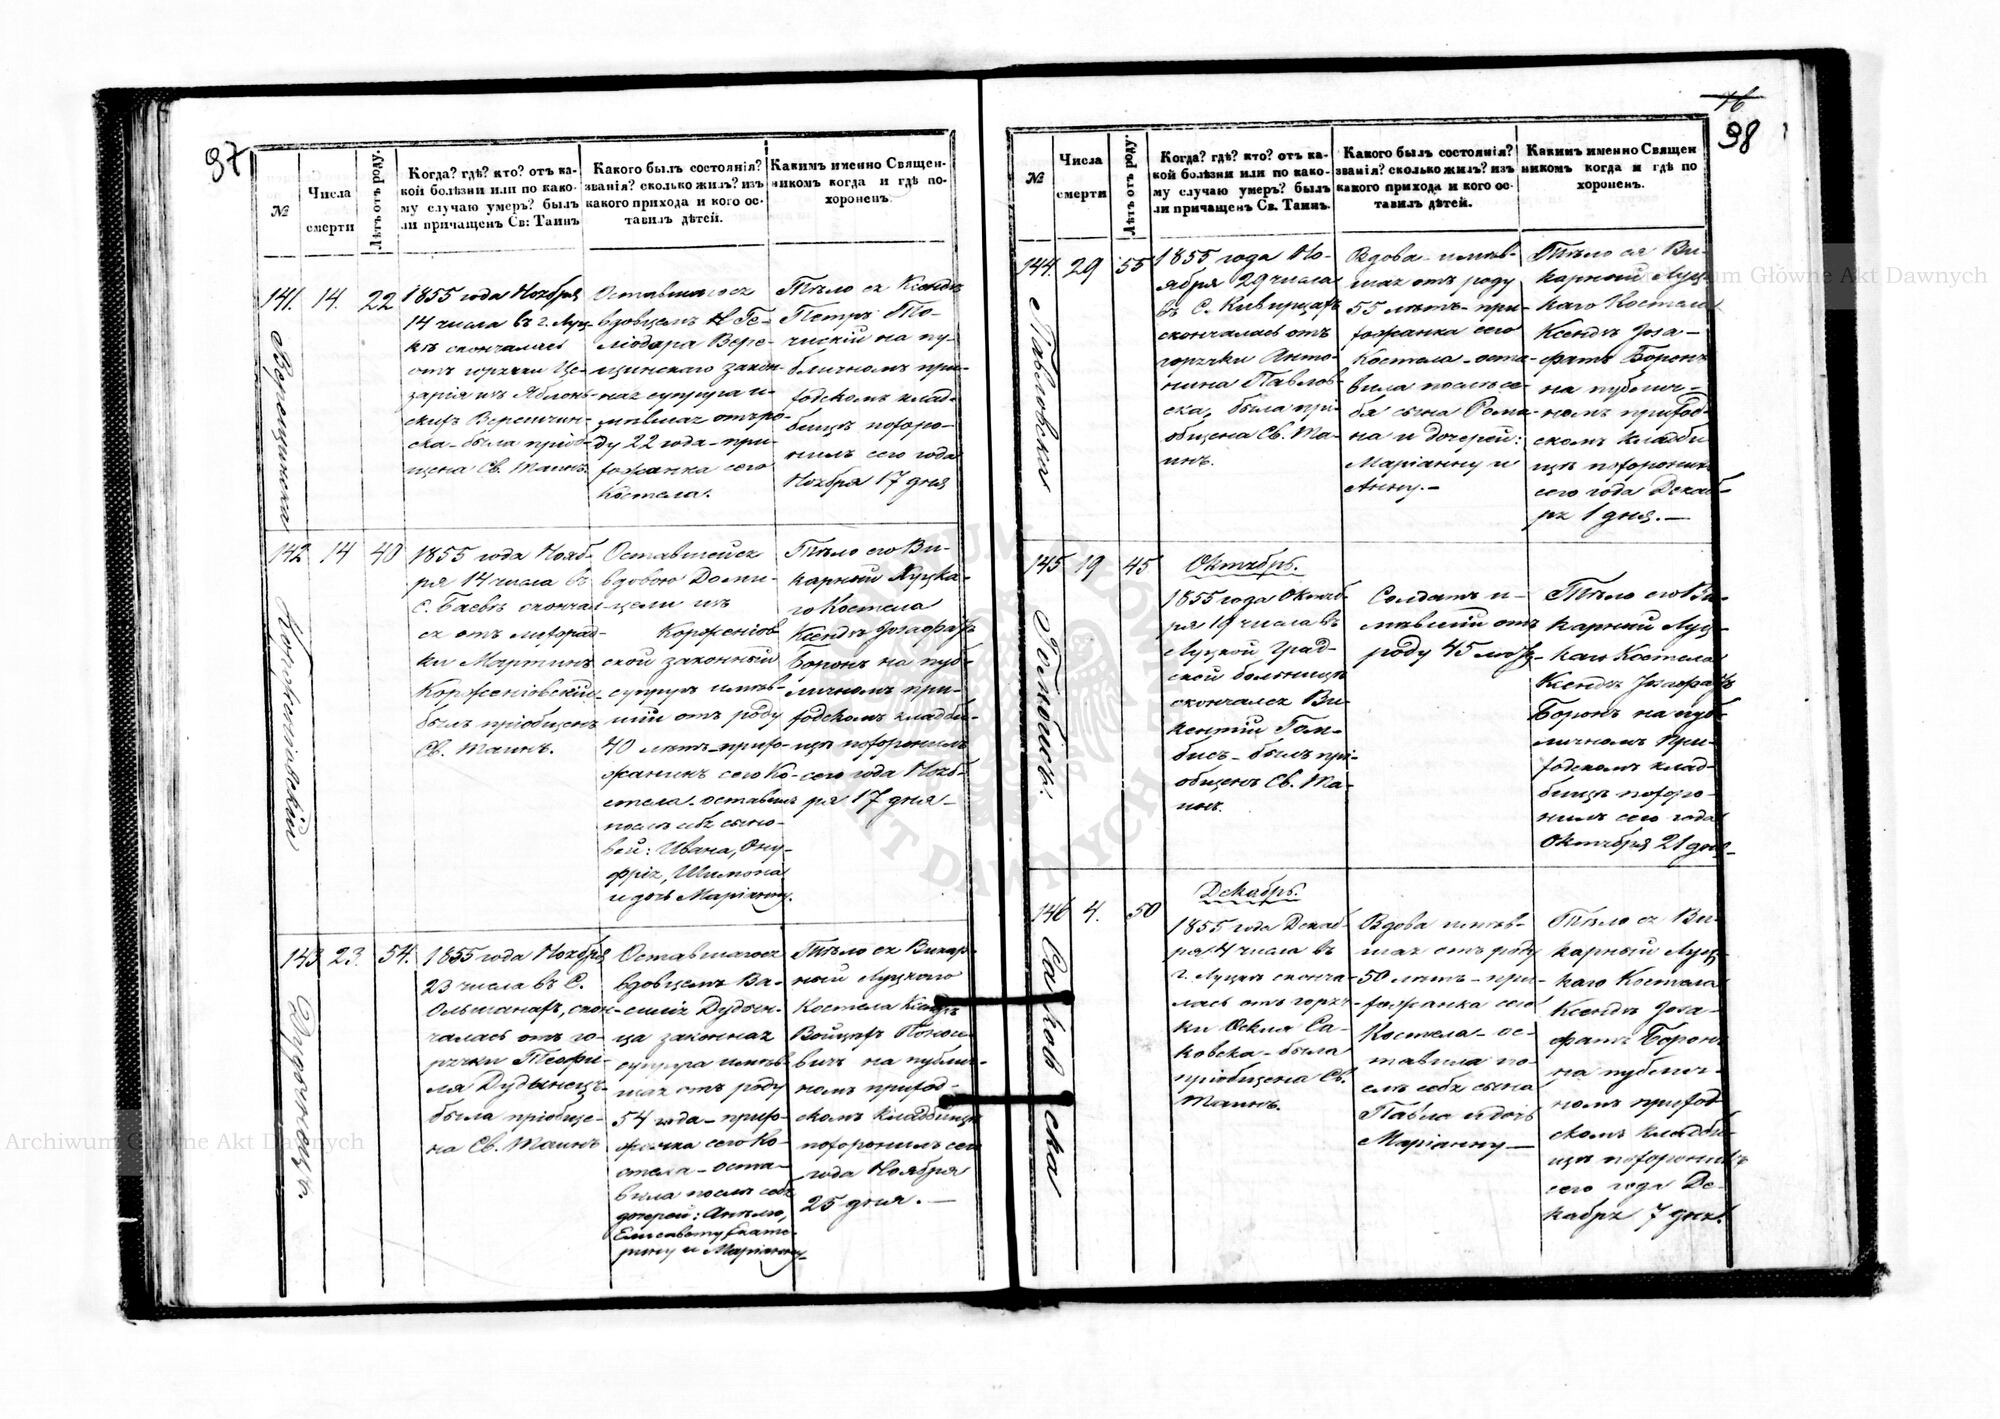 97
№
Числа
смерти
Лѣтъ отъ роду.
Когда? гдѣ? кто? отъ ка-
кой болѣзни или по како-
му случаю умеръ? былъ
ли причащенъ Св: Таинъ
Какого былъ состоянія?
званія? сколько жилъ? изъ
какого прихода и кого ос-
тавилъ дѣтей.
Какимъ именно Священ-
никомъ когда и гдѣ по-
хороненъ.
141. 14. 22
Верещинска
1855 года Ноября
14 числа въ г. Луц-
кѣ скончалась
отъ горячки Це-
зарія изъ Яблонь-
скихъ Верещин-
ска - была пріоб-
щена Св. Таинъ.
Оставшагося
вдовцемъ Ге-
ліодора Вере-
щинскаго закон-
ная супруга и-
мѣвшая отъ ро-
ду 22 года - при-
хожанка сего
Костела.
Тѣло ея Ксендзъ
Петръ
на пу-
бличномъ при-
ходскомъ клад-
бищѣ похоро-
нилъ сего года
Ноября 17 дня
142 14 40
Корженіовскій
1855 года Нояб-
ря 14 числа въ
с. Баевѣ скончал-
ся отъ лихорад-
ки Мартинъ
Корженіовскій
былъ пріобщенъ
Св. Таинъ.
Оставшейся
вдовою Доми-
цели изъ
Корженіов-
ской законный
супругъ имѣв-
шій отъ роду
40 лѣтъ - прихо-
жанинъ сего Ко-
стела. оставилъ
послѣ себя сыно-
вей: Ивана, Ону-
фрія, Шимона
и дочь Маріанну.
Тѣло его Ви-
карный Луцка-
го Костела
Ксендзъ Іозафатъ
Боронъ на пуб-
личномъ при-
ходскомъ кладби-
щѣ похоронилъ
сего года Нояб-
ря 17 дня -
143 23. 54.
Дудынецъ.
1855 года Ноября
23 числа въ С.
Ольшанахъ, скон-
чалась отъ го-
рячки Теофи-
ля Дудынецъ
была пріобще-
на Св. Таинъ
Оставшагося
вдовцемъ Ва-
силія Дудын-
ца законная
супруга имѣв-
шая отъ роду
54 года - прихо-
жанка сего Ко-
стела - оста-
вила послѣ себя
дочерей: Анелю,
Елисавету Екате-
рину и Маріанну
Тѣло ея Викар-
ный Луцкаго
Костела Ксендзъ
Войцехъ
на публич-
номъ приход-
скомъ кладбищѣ
похоронилъ сего
года Ноября
25 дня. -
76
98
№
Числа
смерти
Лѣтъ отъ роду.
Когда? гдѣ? кто? отъ ка-
кой болѣзни или по како-
му случаю умеръ? былъ
ли причащенъ Св. Таинъ.
Какого былъ состоянія?
званія? сколько жилъ? изъ
какого прихода и кого ос-
тавилъ дѣтей.
Какимъ именно Священ
никомъ когда и гдѣ по
хороненъ.
144. 29 55
Павловска
1855 года Но-
ября 29 числа
въ С. Киверцахъ
скончалась отъ
горячки Анто-
нина Павлов-
ска, была прі-
общена Св. Та-
инъ.
Вдова имѣв-
шая отъ роду
55 лѣтъ - при-
хожанка сего
Костела - оста-
вила послѣ се-
бя сына Рома-
на и дочерей:
Маріанну и
Анну. -
Тѣло ея Ви-
карный Луц-
каго Костела
Ксендзъ Іоза-
фатъ Боронъ
на публич-
номъ приход-
скомъ кладби
щѣ похоронилъ
сего года Декаб-
ря 1 дня. -
145 19 45
Гомбисъ.
Октябрь.
1855 года Октяб-
ря 19 числа въ
Луцкой град-
ской больницѣ
скончался Ви-
кентій Гом-
бисъ - былъ прі-
общенъ Св. Та-
инъ.
Солдатъ и-
мѣвшій отъ
роду 45 лѣтъ -
Тѣло его Ви-
карный Луц-
каго Костела
Ксендзъ Іозафатъ
Боронъ на пуб-
личномъ при-
ходскомъ клад-
бищѣ похоро-
нилъ сего года
Октября 21 дня -
146 4. 50
Саковска
Декабрь.
1855 года Декаб-
ря 4 числа въ
г. Луцкѣ сконча-
лась отъ горяч-
ки Са-
ковска - была
пріобщена Св.
Таинъ.
Вдова имѣв-
шая отъ роду
50 лѣтъ - при-
хожанка сего
Костела - ос-
тавила по-
слѣ себя сына
Павла и дочь
Маріанну -
Тѣло ея Ви-
карный Луц-
каго Костела
Ксендзъ Іоза-
фатъ Боронъ
на публич-
номъ приход-
скомъ кладби-
щѣ похоронилъ
сего года Де-
кабря 7 дня.
Archiwum Główne Akt Dawnych
Archiwum Główne Akt Dawnych